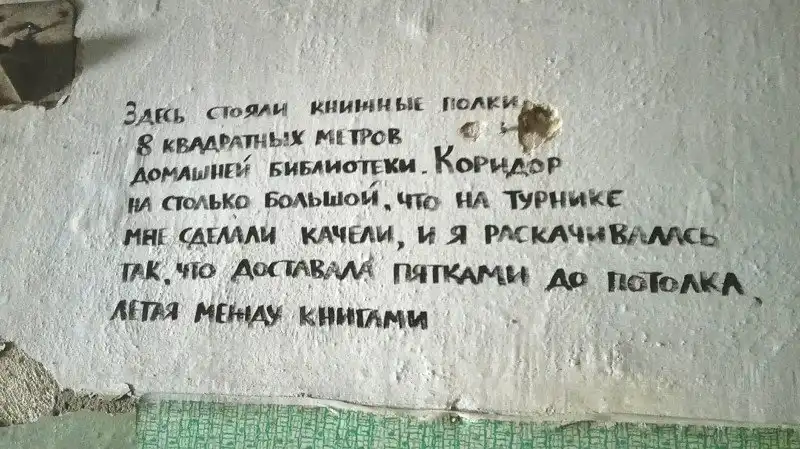 Здесь стояли книжные полки
8 квадратных метров
домашней библиотеки. Коридор
на столько большой, что на турнике
мне сделали качели, и я раскачивалась
так, что доставала пятками до потолка,
летая между книгами